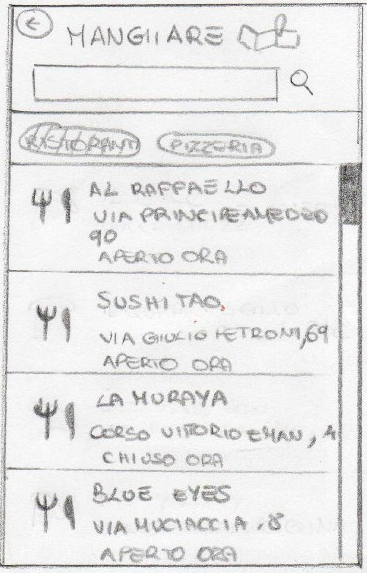 MANGIARE
RISTORANTI
PIZZERIA
AL RAFFAELLO
VIA PRINCIPE AMEDEO
90
APERTO ORA
SUSHI TAO,
VIA GIULIO PETRONI, 69
APERTO ORA
LA MURAYA
CORSO VITTORIO EMAN, 4
CHIUSO ORA
BLUE EYES
VIA MUCIACCIA, 8
APERTO ORA